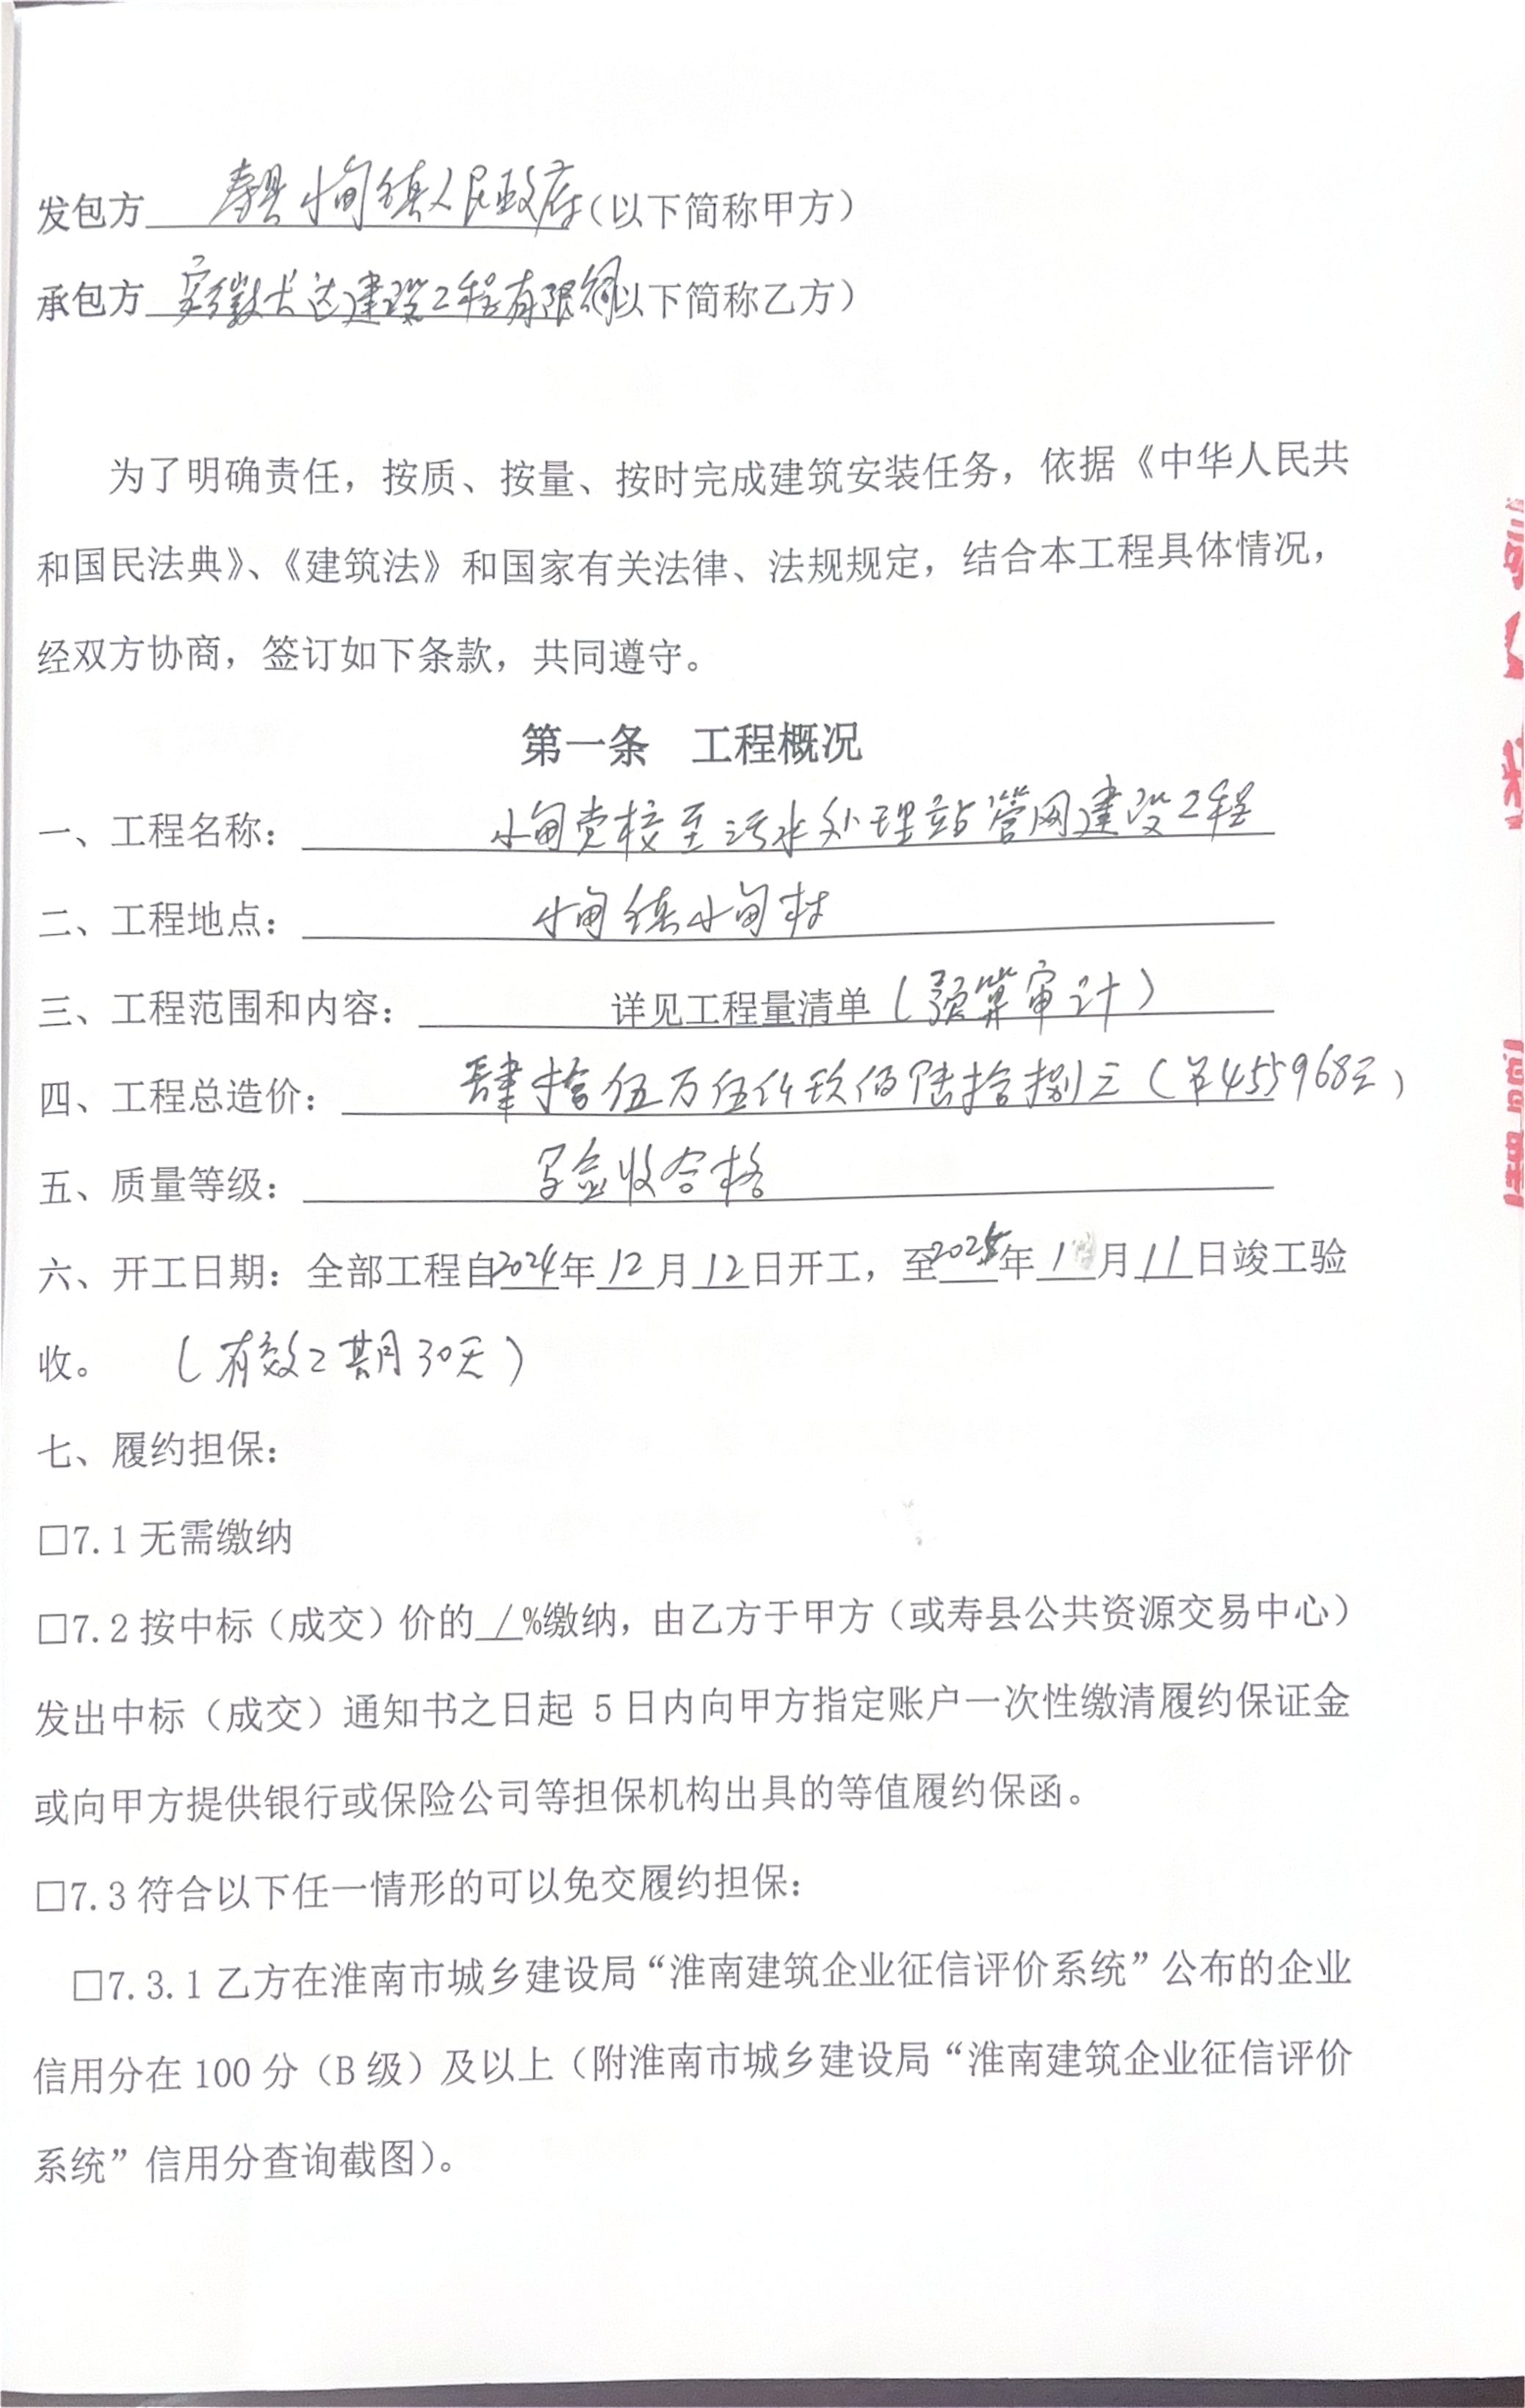 发包方 寿县小甸镇人民政府（以下简称甲方）
承包方 安徽长达建设工程有限公司以下简称乙方）
为了明确责任，按质、按量、按时完成建筑安装任务，依据《中华人民共
和国民法典》、《建筑法》和国家有关法律、法规规定，结合本工程具体情况，
经双方协商，签订如下条款，共同遵守。
第一条 工程概况
一、工程名称： 小甸党校至污水处理站管网建设工程
二、工程地点： 小甸镇小甸村
三、工程范围和内容： 详见工程量清单（预算审计）
四、工程总造价： 肆拾伍万伍仟玖佰陆拾捌元（455968元）
五、质量等级： 验收合格
六、开工日期：全部工程自2024年12月12日开工，至2025年1月11日竣工验
收。 （有效工期30天）
七、履约担保：
□7.1 无需缴纳
□7.2 按中标（成交）价的 / %缴纳，由乙方于甲方（或寿县公共资源交易中心）
发出中标（成交）通知书之日起 5 日内向甲方指定账户一次性缴清履约保证金
或向甲方提供银行或保险公司等担保机构出具的等值履约保函。
□7.3 符合以下任一情形的可以免交履约担保：
□7.3.1 乙方在淮南市城乡建设局“淮南建筑企业征信评价系统”公布的企业
信用分在 100 分（B 级）及以上（附淮南市城乡建设局“淮南建筑企业征信评价
系统”信用分查询截图）。